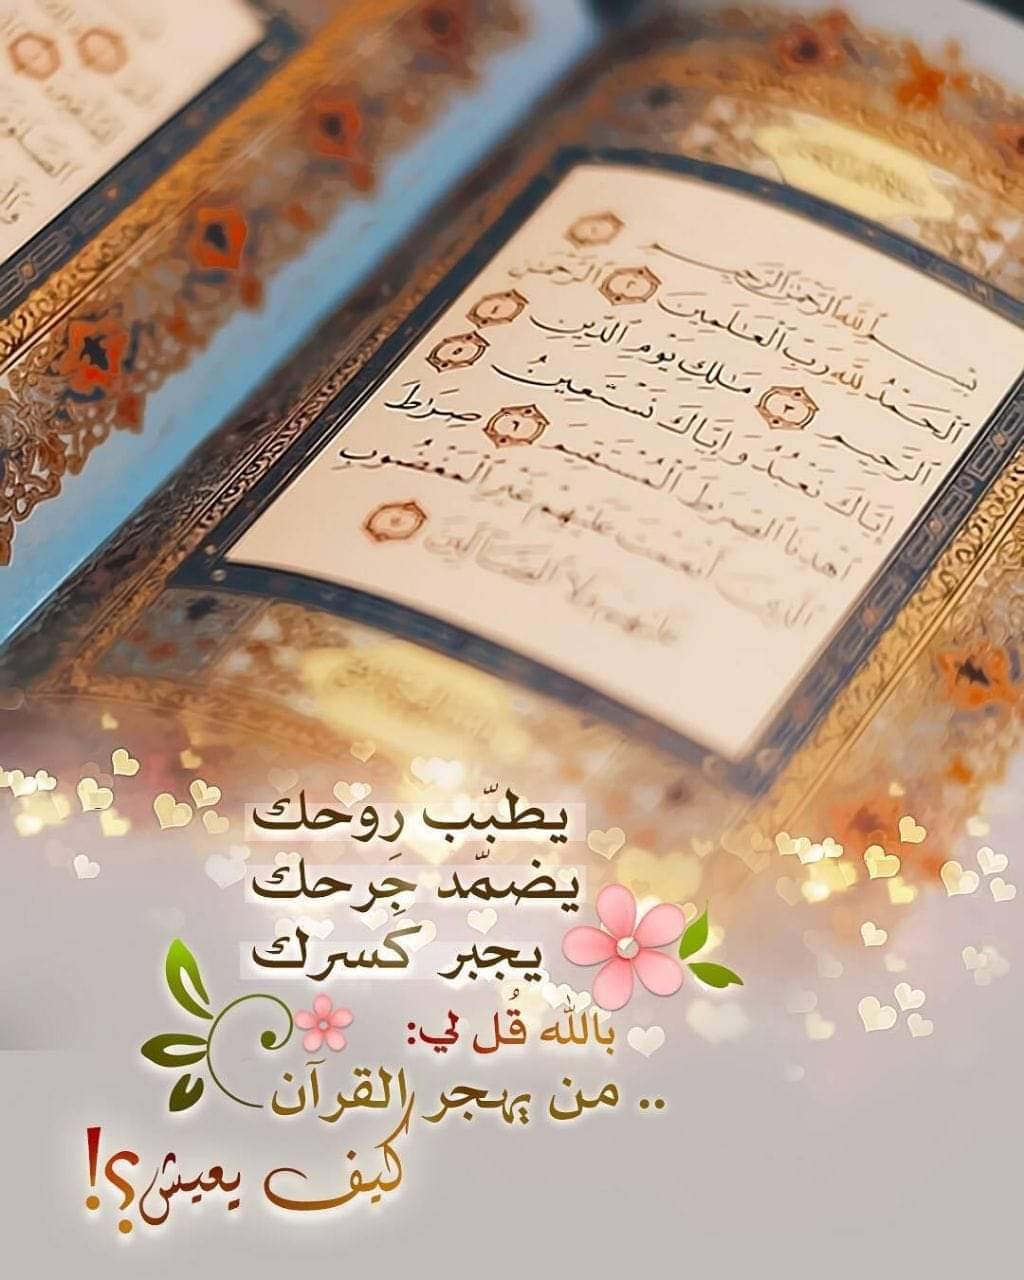 بسم الله الرحمن الرحيم ١
الحمد لله رب العالمين ٢ الرحمن
الرحيم ٣ ملك يوم الدين ٤
إياك نعبد وإياك نستعين ٥
اهدنا الصرط المستقيم ٦ صرط
الذين أنعمت عليهم غير المغضوب
عليهم ولا الضالين ٧
يطبّب رَوحك
يضمّد جَرحك
يجبر كَسرك
بالله قُل لي:
.. من يهجر القرآن
كيف يعيش؟!